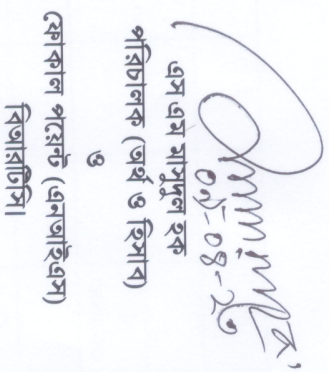 ০৯-০৪-২৩
এস এম মাসুদুল হক
পরিচালক (অর্থ ও হিসাব)
ও
ফোকাল পয়েন্ট (এনআইএস)
বিআরটিসি।